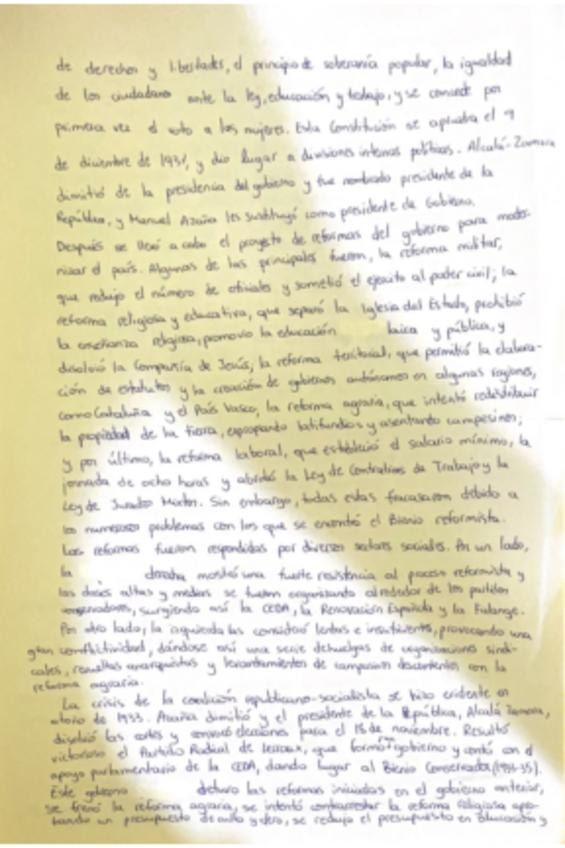 de derechos y libertades, el principio de soberanía popular, la igualdad
de los ciudadanos ante la ley, educación y trabajo, y se concede por
primera vez el voto a las mujeres. Esta Constitución se aprueba el 9
de diciembre de 1931, y dio lugar a divisiones internas políticas. Alcalá-Zamora
dimitió de la presidencia del gobierno y fue nombrado presidente de la
República, y Manuel Azaña les sustituyó como presidente de Gobierno.
Después se llevó a cabo el proyecto de reformas del gobierno para moder-
nizar el país. Algunas de las principales fueron, la reforma militar,
que redujo el número de oficiales y sometió el ejercito al poder civil; la
reforma religiosa y educativa, que separó la Iglesia del Estado, prohibió
la enseñanza religiosa, promovio la educación laica y pública, y
disolvió la Compañía de Jesús, la reforma territorial, que permitió la elabora-
ción de estatutos y la creación de gobiernos autónomos en algunas regiones,
como Cataluña y el País Vasco, la reforma agraria, que intentó redistribuir
la propiedad de la tierra, expropiando latifundios y asentando campesinos;
y por último, la reforma laboral, que estableció el salario mínimo, la
jornada de ocho horas y abordó la Ley de Contratos de Trabajo y la
Ley de Jurados Mixtos. Sin embargo, todas estas fracasaron debido a
los numerosos problemas con los que se encontró el Bienio reformista.
Las reformas fueron respondidas por diversos sectores sociales. Por un lado,
la derecha mostró una fuerte resistencia al proceso reformista y
las clases altas y medias se fueron organizando alrededor de los partidos
conservadores, surgiendo así la CEDA, la Renovación Española y la Falange.
Por otro lado, la izquierda las consideró lentas e insuficientes, provocando una
gran conflictividad, dándose así una serie de huelgas de organizaciones sindi-
cales, revueltas anarquistas y levantamientos de campesinos descontentos con la
reforma agraria.
La crisis de la coalición republicano-socialista se hizo evidente en
otoño de 1933. Azaña dimitió y el presidente de la República, Alcalá Zamora,
disolvió las cortes y convocó elecciones para el 18 de noviembre. Resultó
victorioso el Partido Radical de Lerroux, que formó gobierno y contó con el
apoyo parlamentario de la CEDA, dando lugar al Bienio Conservador (1933-35).
Este gobierno detuvo las reformas iniciadas en el gobierno anterior,
se frenó la reforma agraria, se intentó contrarrestar la reforma religiosa apro-
bando un presupuesto de culto y clero, se redujo el presupuesto en Educación y